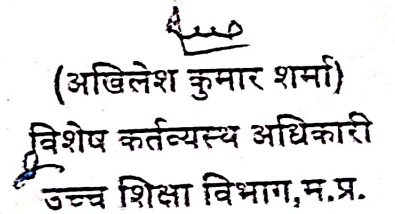 (अखिलेश कुमार शर्मा)
विशेष कर्तव्यस्थ अधिकारी
उच्च शिक्षा विभाग,म.प्र.